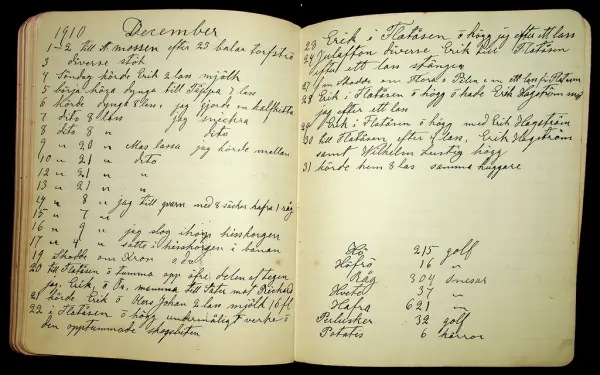 1910 December
1-2 till mossen efter 25 balar torfströ
3 diverse stök
4 Söndag körde Erik 2 lass mjölk
5 börja köra dynga till Täppa 7 lass
6 körde dynga 8 lass, jag gjorde en halfkista
7 dito 8 lass jag snickra
8 dito 8 " dito
9 " 20 " Mas Lassa jag körde mallan
10 " 21 " dito
12 " 21 " "
13 " 21 " "
14 " 8 " jag till qvarn med 8 säcker hafra 1 råg
15 " 7 "
16 " 9 " jag slog ihop hisskorgen
17 " 4 " sätte i hisskorgen i banan
19 Skodde om Kron
20 till Flatåsen o tumma opp öfre delen af tegen
jag, Erik, o Da. mamma till Päter mot Rickard
21 körde Erik o Hars Johan 2 lass mjölk 16 fl
22 i Flatåsen o högg undermåligt verke i
den opptummade skogsbiten
23 Erik i Flatåsen o högg jag efter ett lass
24 Julafton diverse Erik till Flatåsen
efter ett lass stänger
27 om Skodde om Stora o Pelen, o m ett lass fr. Flatåsen
28 Erik i Flatåsen o högg o hade Erik Hagström mej
jag efter ett lass
29 Erik i Flatåsen o högg med Erik Hagström
30 till Flatåsen efter 4 lass, Erik Hagström
samt Wilhelm Lustig högg
31 körde hem 3 las samma huggare
Hö 215 golf
Höfrö 16 "
Råg 304 snesar
Hvete 37 "
Hafra 621 "
Perlusker 32 golf
Potatis 6 kärror